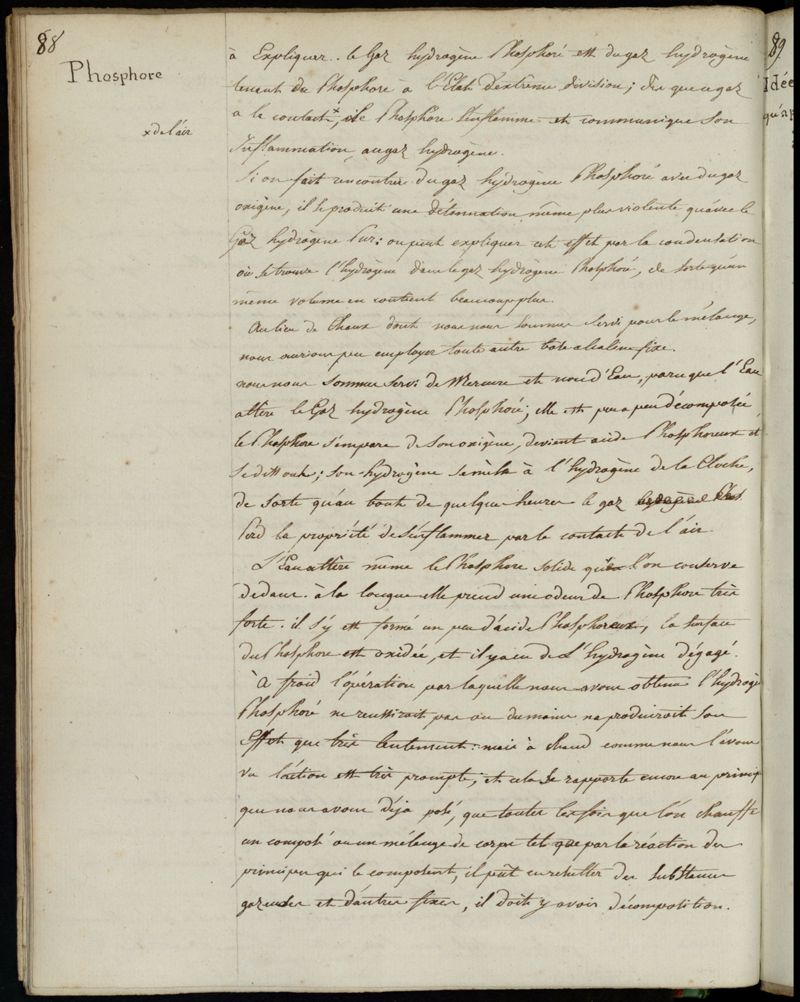 88
Phosphore
x de l'air
à Expliquer. le Gaz hydrogène Phosphoré est du gaz hydrogène
tenant du Phosphore à l'Etat d'extrême division; dès que ce gaz
a le contact x, le Phosphore s'enflamme et communique son
Inflammation au gaz hydrogène.
Si on fait rencontrer du gaz hydrogène Phosphoré avec du gaz
oxigène, il se produit une détonnation même plus violente qu'avec le
Gaz hydrogène Pur: on peut expliquer cet effet par la condensation
où se trouve l'hydrogène dans le gaz hydrogène Phosphoré, de sorte qu'un
même volume en contient beaucoup plus.
Au lieu de Chaux dont nous nous sommes servis pour le mélange,
nous aurions peu employer toute autre base alcaline fixe.
nous nous sommes servi de Mercure et non d'Eau, parce que l'Eau
altère le Gaz hydrogène Phosphoré; elle est peu a peu décomposée
le Phosphore s'empare de son oxigène, devient acide Phosphoreux et
se dissout; son hydrogène se mêle à l'hydrogène de la Cloche,
de sorte qu'au bout de quelques heures le gaz
Perd la propriété de s'enflammer par le contact de l'air.
L'Eau altère même le Phosphore solide que l'on conserve
dedans. à la longue elle prend une odeur de Phosphore très
forte. il s'y est formé un peu d'acide Phosphoreux, la surface
du Phosphore est oxidée, et il y a eu de L'hydrogène dégagé.
à froid l'opération par laquelle nous avons obtenu l'hydrogè
Phosphoré ne reussirait pas ou du moins ne produiroit son
Effet que très lentement: mais à chaud comme nous l'avons
vu l'action est très prompte; et cela se rapporte encore au princip
que nous avons déja posé, que toutes les fois que l'on chauffe
un composé ou un mélange de corps tel que par la réaction des
principes qui le composent, il peût en résulter des substances
gazeuses et d'autres fixes, il doit y avoir décomposition.
89
Idée
qu'ap